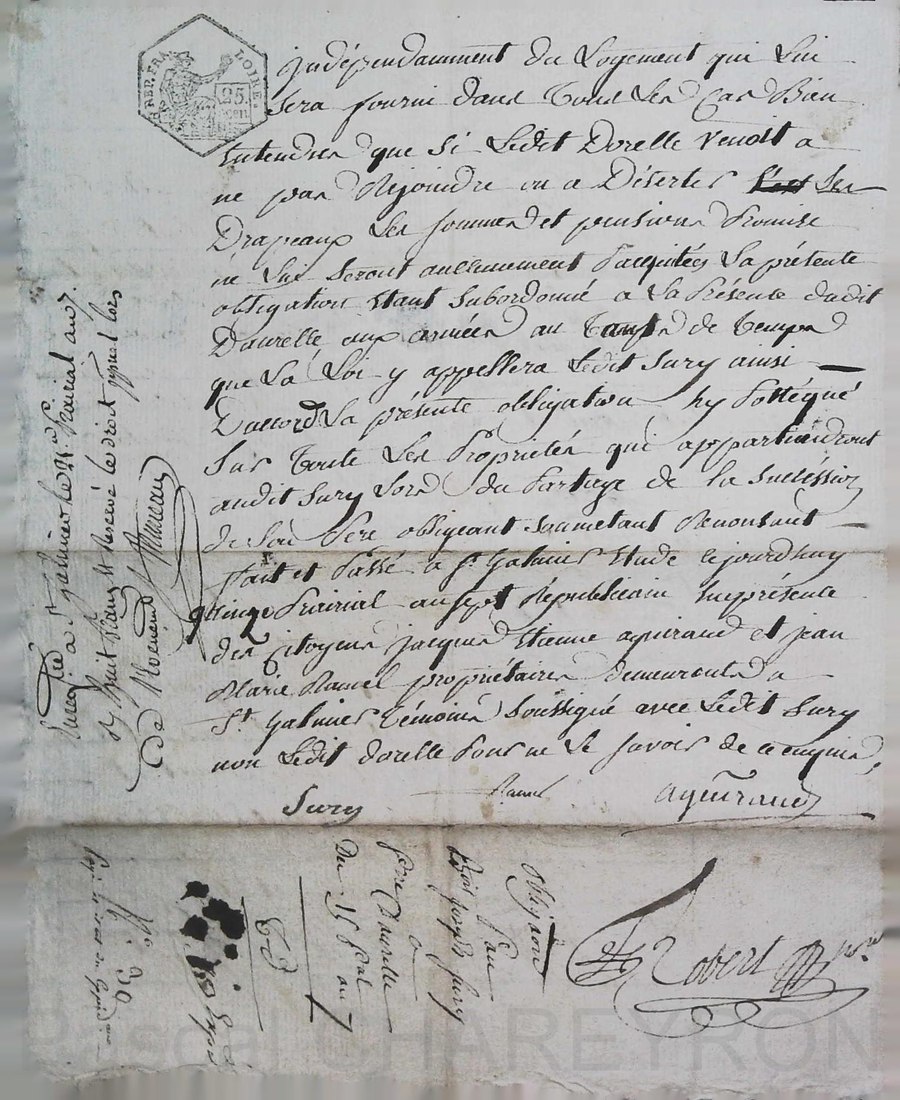 REP. FRA. LOIRE.
25. cen
indépendamment du Logement qui Lui
Sera fourni dans Tous Les Cas Bien
Entendu que Si Ledit Dorelle Venoit a
ne pas Rejoindre ou a Déserter Ses
Drapeaux Les Sommes et pensions Promise
ne Lui Seront aucunement Lacquitées La présente
obligation Etant Subordonné a La Présente dudit
Daurelle aux armées au Tamps de Temps
que La Loi y appellera Ledit Sury ainsi
Daccord La présente obligation hy Pottéqué
Sur Toute Les Propriétés qui appartiendront
audit Sury Lors du Partage de La Succéssion
de Son Pere obligeant Soumetant Renonsant
fait et Passé a St. Galmier Etude cejourdhuy
quinze Prairial an sept Républicain En présente
des Citoyens jacques Etienne aguiraud et jean
Marie Ramel propriétaires demeurants a
St. Galmier Témoins Soussigné avec Ledit Sury
non Ledit dorelle Pour ne Le Savoir de ce enquis
Sury Ramel aguiraud
Robert
Enregistré a St. galmier Le Prairial an 7.
Reservé Le droit
obligaon
Pau
joseph Sury
a
Daurelle
Du 15 Prial
an 7
No. 30